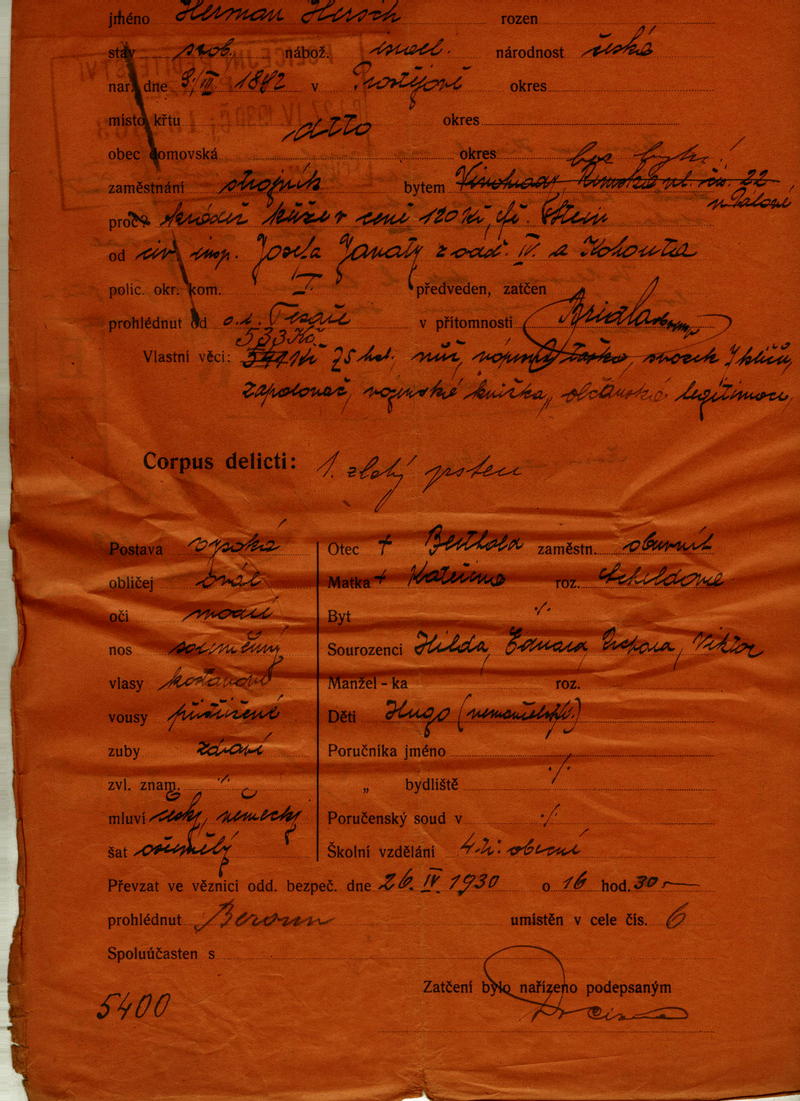 jméno Herman Hersch rozen
stav svob. nábož. israel. národnost česká
nar. dne 9/III 1892 v Prostějově okres
místo křtu okres
ditto
obec domovská okres bez bytu!
zaměstnání strojník bytem Vinohrady, Římská ul. čís. 22
proč? krádež kůže v ceně 120 Kč,
od civ. insp. Josefa Janaty z odd. IV. a Kohouta
polic. okr. kom. I. předveden, zatčen
prohlédnut od v přítomnosti
533 Kč
Vlastní věci: Kč 75 hal., nůž, svazek klíčů,
zapalovač, vojenská knížka, občanská legitimace,
Corpus delicti: 1. zlatý prsten
Postava vysoká Otec + Berthold zaměstn. obuvník
obličej ovál Matka + Kateřina roz. Scheldova
oči modré Byt ·/.
nos souměrný Sourozenci Hilda, Eduard, Viktor
vlasy kaštanové Manžel - ka roz.
vousy přistřižené Děti Hugo
zuby zdravé Poručníka jméno
zvl. znam. ·/. „ bydliště ·/.
mluví česky, německy Poručenský soud v ·/.
šat Školní vzdělání 4. tř. obecné
Převzat ve věznici odd. bezpeč. dne 26. IV. 1930 o 16 hod. 30
prohlédnut Beroun umístěn v cele čís. 6
Spoluúčasten s
Zatčení bylo nařízeno podepsaným
5400